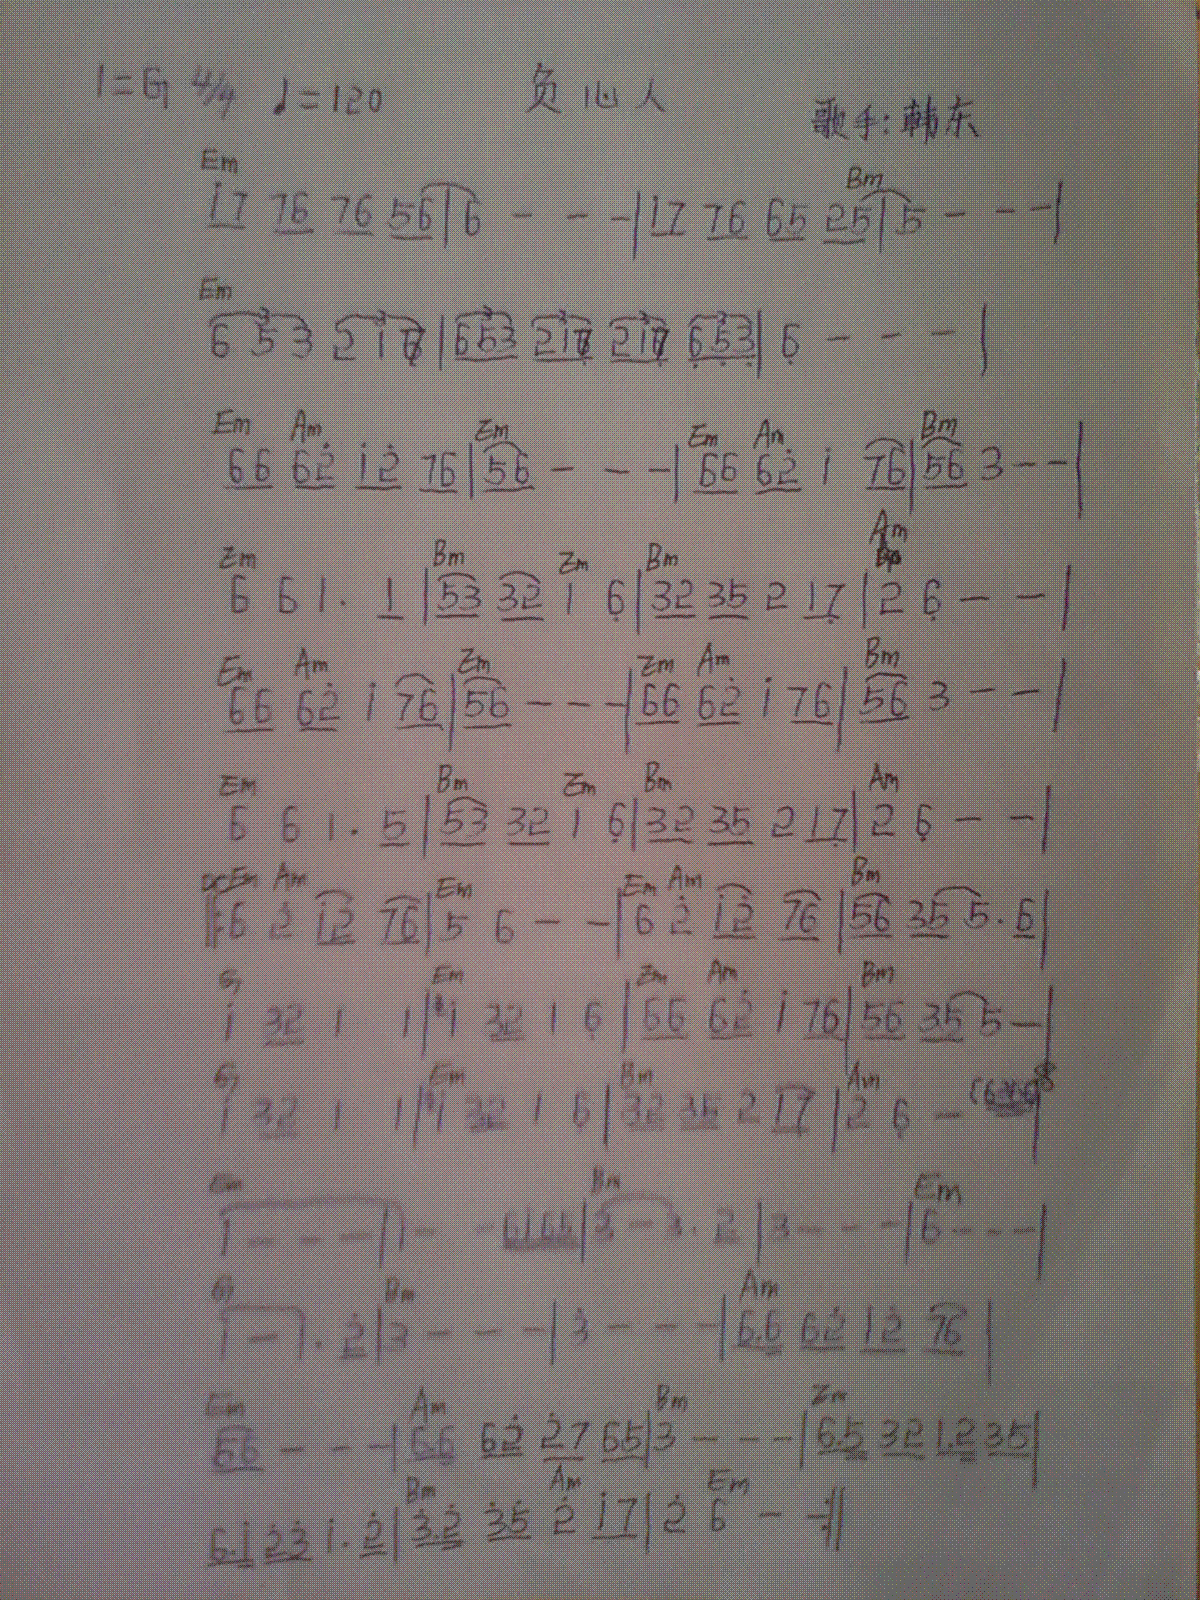 1=G 4/4 ♩=120 负心人
歌手:韩东
Em Bm
i7 76 76 56 | 6 - - - | 17 76 65 25 | 5 - - - |
Em
6 5 3 2 1 7 | 653 217 217 653 | 6 - - - |
Em Am Em Em Am Bm
66 62 i 2 76 | 56 - - - | 66 62 i 76 | 56 3 - - |
Em Bm Em Bm Am
6 6 1. 1 | 53 32 1 6 | 32 35 2 17 | 2 6 - - |
Em Am Em Em Am Bm
66 62 i 76 | 56 - - - | 66 62 i 76 | 56 3 - - |
Em Bm Em Bm Am
6 6 1. 5 | 53 32 1 6 | 32 35 2 17 | 2 6 - - |
Em Am Em Em Am Bm
|: 6 2 i2 76 | 5 6 - - | 6 2 i2 76 | 56 35 5. 6 |
G Em Em Am Bm
i 32 1 1 | 1 32 1 6 | 66 62 i 76 | 56 35 5 - |
G Em Bm Am
1 32 1 1 | 1 32 1 6 | 32 35 2 17 | 2 6 -
Em Bm Em
1 - - - | 1 - - | 3 - 3. 2 | 3 - - - | 6 - - - |
G Bm Am
1 - 1. 2 | 3 - - - | 3 - - - | 6.6 62 12 76 |
Em Am Bm Em
56 - - - | 6.6 62 27 65 | 3 - - - | 6.5 32 1.2 35 |
Bm Am Em
6.1 23 1. 2 | 3.2 35 2 17 | 2 6 - - :||